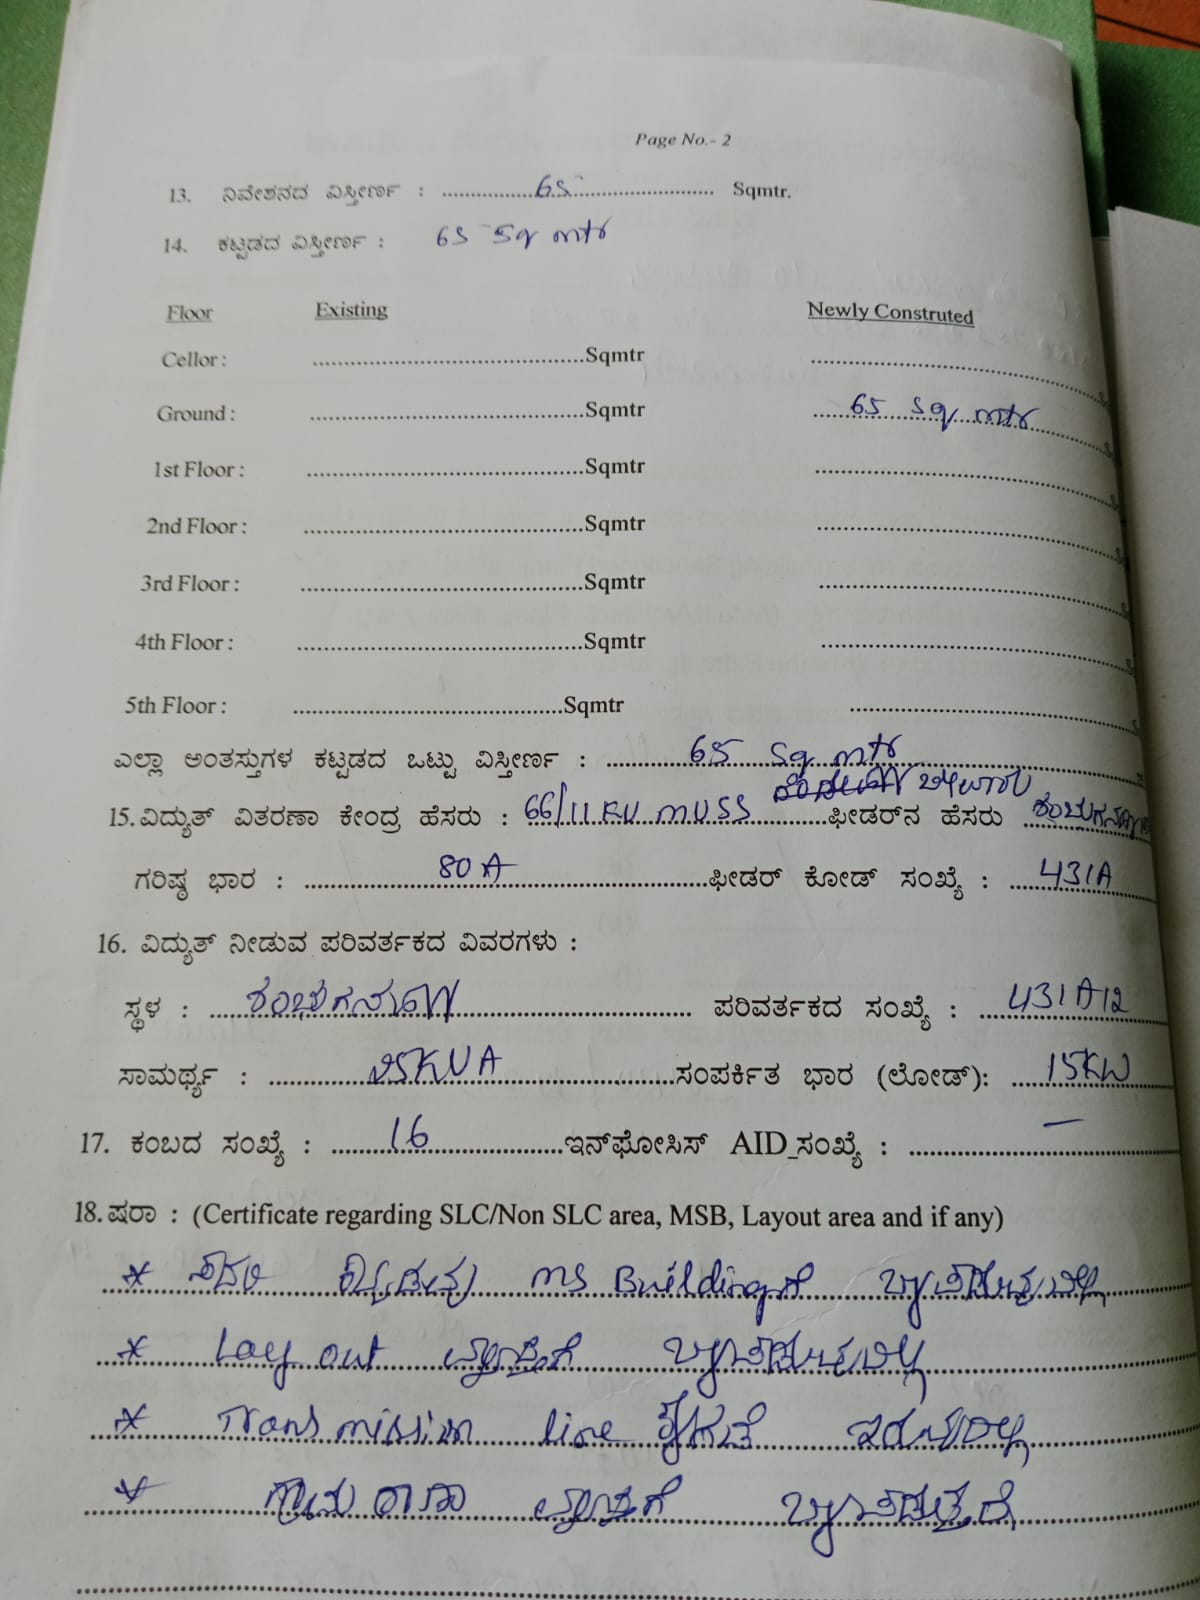 Page No.- 2
13. ನಿವೇಶನದ ವಿಸ್ತೀರ್ಣ : 65 Sqmtr.
14. ಕಟ್ಟಡದ ವಿಸ್ತೀರ್ಣ : 65 Sq mtr
Floor Existing Newly Construted
Cellor : Sqmtr
Ground : Sqmtr 65 Sq mtr
1st Floor : Sqmtr
2nd Floor : Sqmtr
3rd Floor : Sqmtr
4th Floor : Sqmtr
5th Floor : Sqmtr
ಎಲ್ಲಾ ಅಂತಸ್ತುಗಳ ಕಟ್ಟಡದ ಒಟ್ಟು ವಿಸ್ತೀರ್ಣ : 65 Sq mtr
15. ವಿದ್ಯುತ್ ವಿತರಣಾ ಕೇಂದ್ರ ಹೆಸರು : 66/11 KV MUSS ಫೀಡರ್‌ನ ಹೆಸರು
ಗರಿಷ್ಠ ಭಾರ : 80 A ಫೀಡರ್ ಕೋಡ್ ಸಂಖ್ಯೆ : 431A
16. ವಿದ್ಯುತ್ ನೀಡುವ ಪರಿವರ್ತಕದ ವಿವರಗಳು :
ಸ್ಥಳ : ಪರಿವರ್ತಕದ ಸಂಖ್ಯೆ : 431A12
ಸಾಮರ್ಥ್ಯ : 25KVA ಸಂಪರ್ಕಿತ ಭಾರ (ಲೋಡ್): 15KW
17. ಕಂಬದ ಸಂಖ್ಯೆ : 16 ಇನ್‌ಫೋಸಿಸ್ AID_ಸಂಖ್ಯೆ : —
18. ಷರಾ : (Certificate regarding SLC/Non SLC area, MSB, Layout area and if any)
* ಸದರಿ ms Buildingಗೆ
* Lay out ವ್ಯಾಪ್ತಿಗೆ
* Transmission line ಇರುವುದಿಲ್ಲ
* ವ್ಯಾಪ್ತಿಗೆ